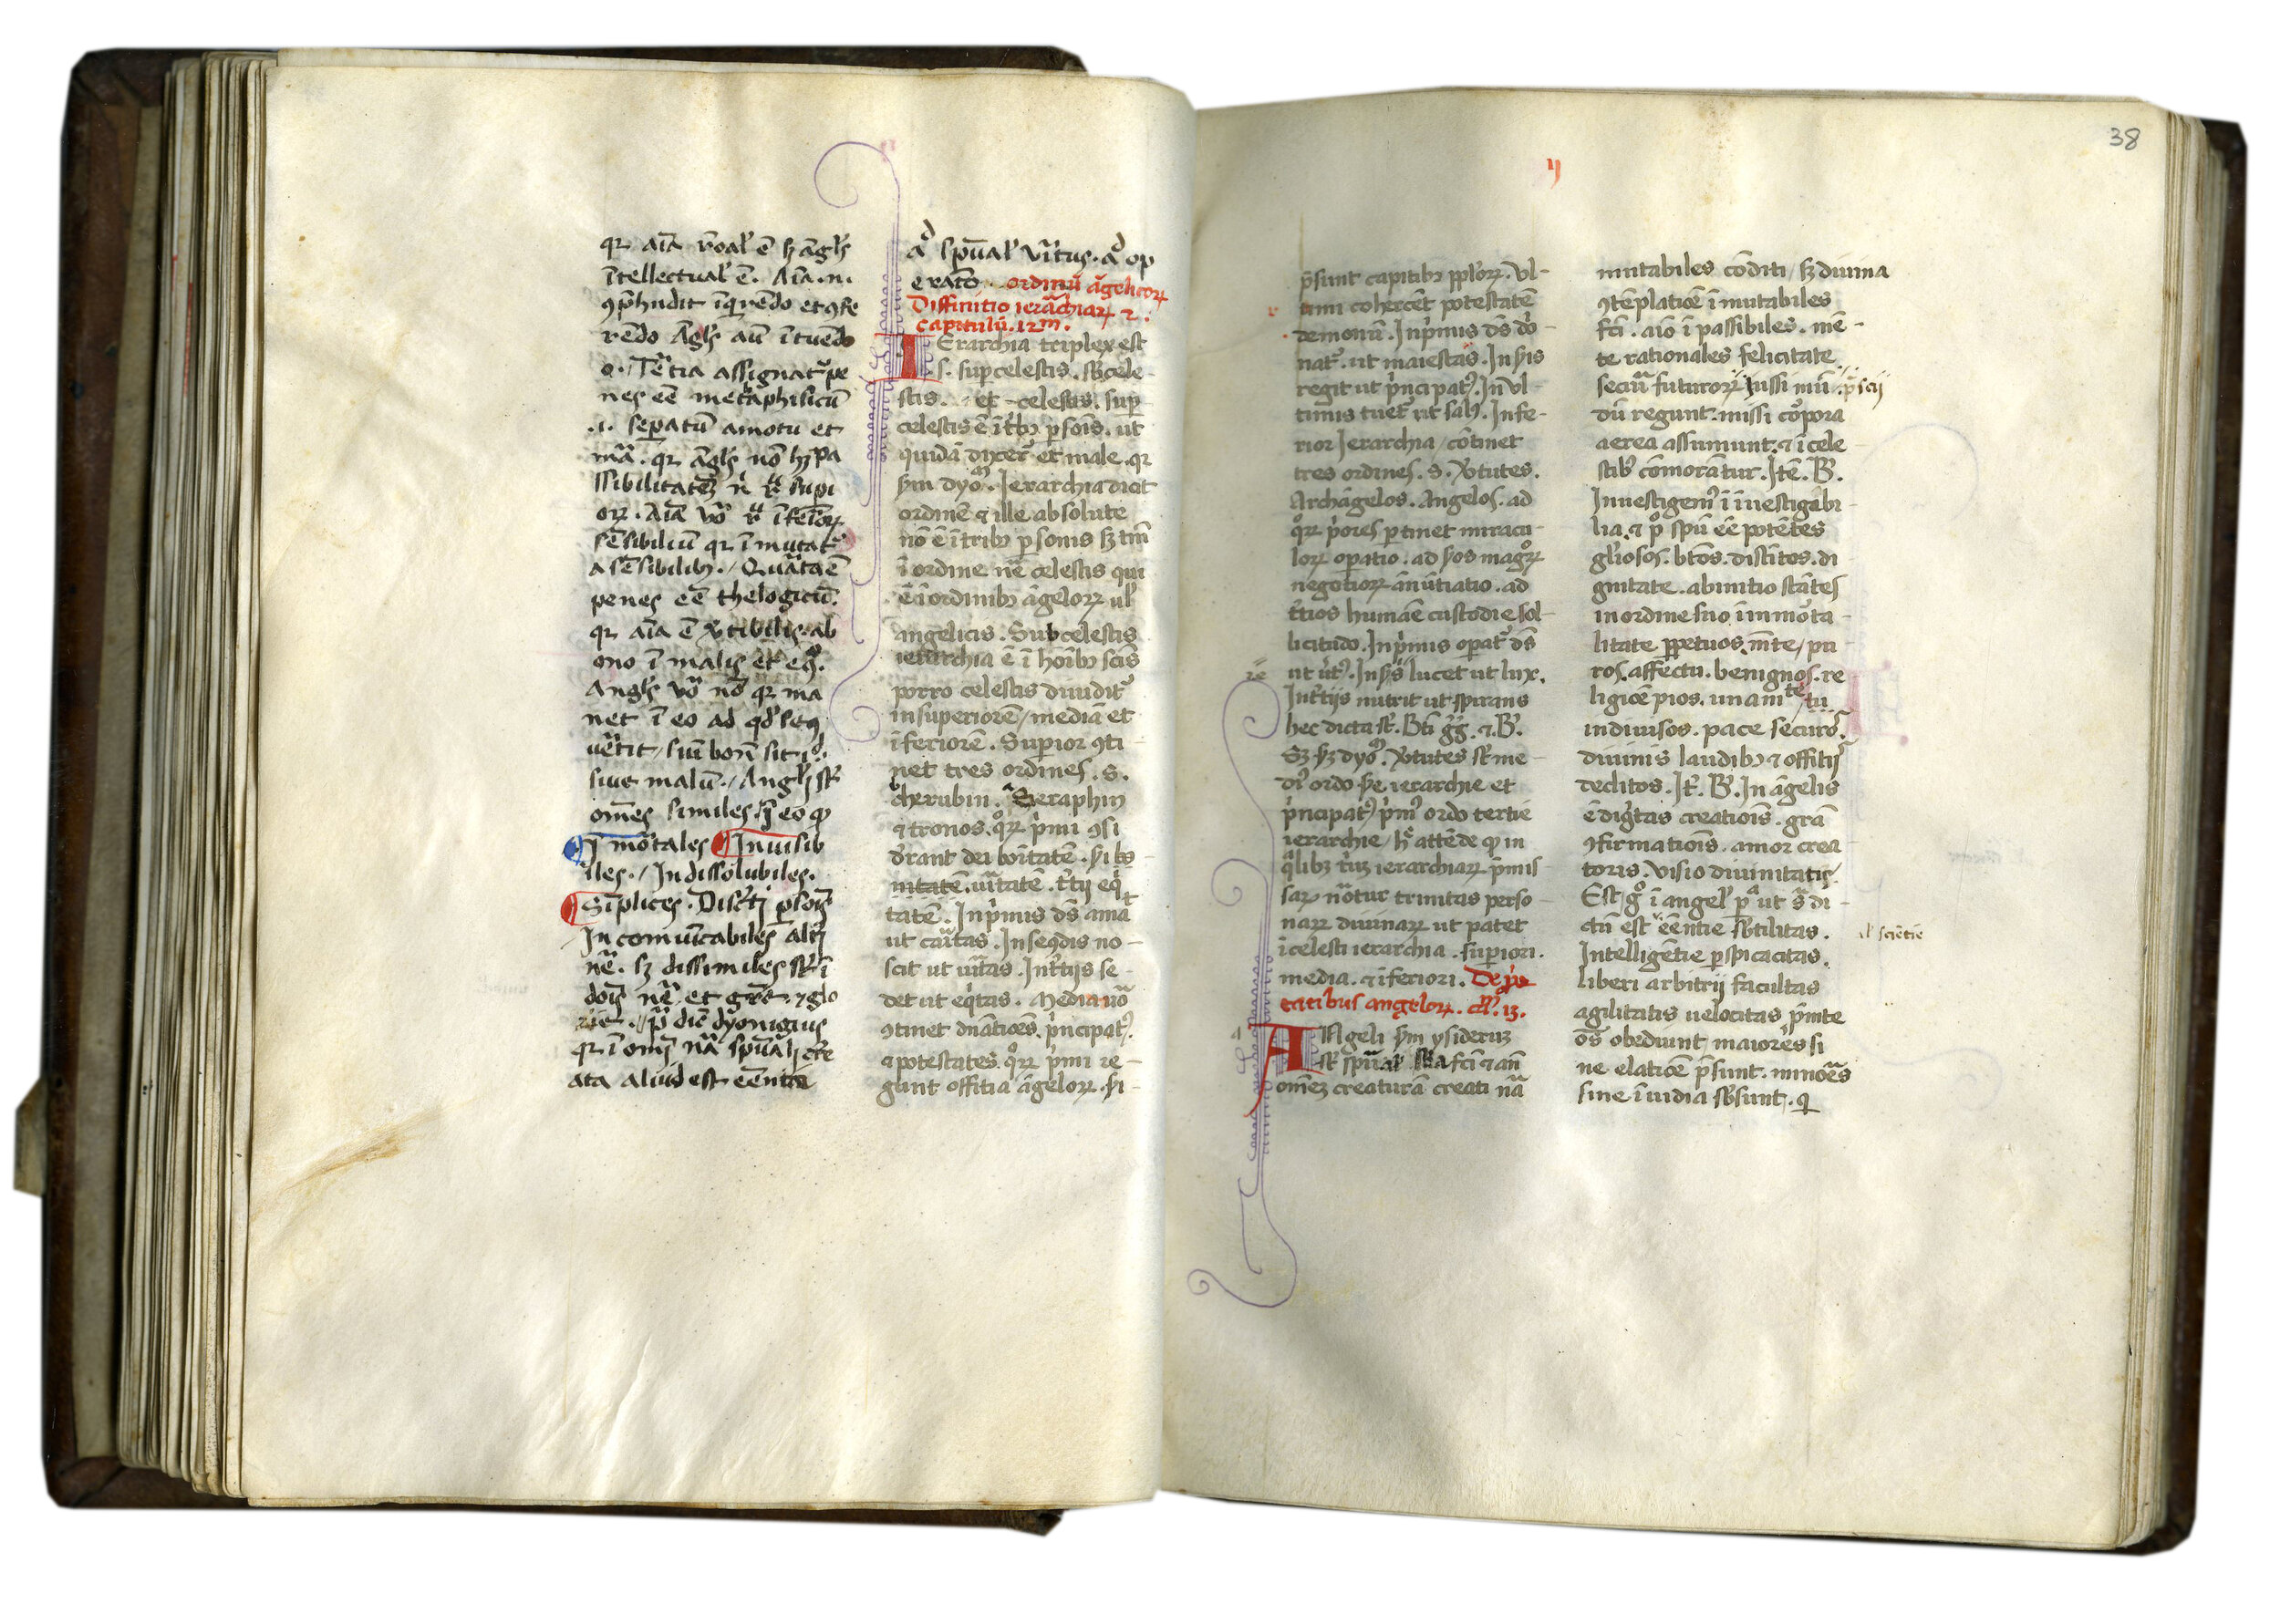 qr aīa rōal' ē sȝ āgl's
ītellectual' ē. Aīa .n.
ꝯp̄hndit īq̄rēdo et ꝯfe
rēdo Āgl's aū ītuēdo
o. Tētia assignat᷑ pe
nes eē metaphisicū
.i. sepatū amotu et
mā. qr āgl's nō hȝ pa
ssibilitatēȝ
orꝝ. Aīa vō
sēsibiliū qr īmutat᷑
a sēsibilibꝫ. Quāta ē
penes eē thelogicū.
qr aīa ē v̄tibilis. ab
ono ī malis et eꝯ.
Angl's vō nō qr ma
net ī eo ad qd' seq
v̄tit / siu̅ bonū sit id.
siue malū. Angl'i st̄
om̄es similes ī eo ꝙ
īmōrtales Inuisib
iles. / Indissolubiles.
Sīplices. Disc̄ti psoīs
Incomūīcabiles al'ri
nē. sȝ dissimiles st̄ ī
doīs nē et gr̄e ⁊ glo
rie. pp̄ dic̄ dyonigius
qr ī om̄i nā spūāli cre
ata aliud est eēntia
ad spūal' v̄tus. ad op
eratō. ordinū āgelicorꝝ
Diffinitio ierāchiarꝝ ⁊
capitulū. 12m.
IErarchia triplex est
s. suꝑcelestis. sb̄cele
stis. et celestis. suꝑ
celestis ē ī t'bꝫ ꝑsoīs. ut
quidā dix̄ert et male. qr
scd̄m dyō. Ierarchia dicit
ordinē ⁊ ille absolute
nō ē ī tribꝫ ꝑsonis sȝ tm̄
ī ordine nē celestis que
ē ī ordinibꝫ āgelorꝝ ul'
angelicis. Subcelestis
ierarchia ē ī hoībꝫ sc̄is
porro celestis diuidit᷑
in superiorē / mediā et
īferiorē. Supior ꝯti
net tres ordines. s.
cherubin. Seraphin
⁊ tronos. qorꝝ p̄mi ꝯsi
d'rant dei bonitatē. scd'i
nitatē. u̅itatē. t̄tij eq̄
tatē. In p̄mis d̄s amat
ut cāitas. In seq̄dis no-
scit ut u̅itas. In t̄tijs se-
det ut eq̄tas. Media uō
ꝯtinet dn̄atiōes. p̄ncipat᷒.
⁊ potestates. qorꝝ p̄mi re-
gunt offitia āgelorꝝ. scd'i-
y
38
p̄sunt capitibꝫ pplorꝝ. Vl-
timi cohercēt potestatē
demonū. In p̄mis d̄s do-
nat᷑. ut maiestas. In scd'is
regit ut p̄ncipat᷒. In vl-
timis tuet᷑ ut salꝫ. Infe-
rior Ierarchia / cōtinet
tres ordines. s. V̄tutes.
Archāgelos. Angelos. ad
qorꝝ p̄ores ꝑtinet miracu-
lorꝝ oꝑatio. ad scd'os magorꝝ
negotiorꝝ ānūtiatio. ad
t̄tios humāe custodie sol-
licitudo. In p̄mis oꝑat᷑ d̄s
ut v̄t᷒. In scd'is lucet ut lux.
In t̄tijs nutrit ut spirans
hec dicta st̄. Bt̄i g̅g̅. ⁊. B'.
Sȝ scd'm dyō. V̄tutes st̄ me-
di' ordo scd'e ierarchie et
p̄ncipat᷒ p̄m᷒ ordo tertie
ierarchie / h̄ attēde ꝙ in
q̄libꝫ t'ū ierarchiarꝝ p̄mis-
sarꝝ nōtur trinitas perso-
narꝝ diuinarꝝ ut patet
ī celesti ierarchia. suꝑiori.
media. ⁊ īferiori. De p̄
tatibus angelorꝝ. c̄p. 13.
ANgeli scd'm ysiderum
st̄ spūal' sb̄a fc̄i ⁊ an̄
om̄eȝ creaturā creati nā
mutabiles cōditi / sȝ diuina
ꝯtēplatiōe īmutabiles
fc̄i. aīo īpassibiles. mē-
te rationales felicitate
secūi futurorꝝ p̄scij iussi mū
dū regunt. missi corpora
aerea assumunt. ⁊ ī cele
stibꝫ cōmorātur. Itē. B'.
Inuestigem᷒ ī īuestigabi-
lia. ⁊ p̄ spū eē potētes
gl'iosos. bt̄os. distītos. di
gnitate. abinitio stātes
in ordine suo īmorta-
litate ꝑpetuos. mēte / pu-
ros. affectu. benignos. re
ligiōe pios. unamte / tu
indiuisos. pace securos.
diuinis laudibꝫ ⁊ offitijs
deditos. It̄. B'. In āgelis
ē dig̅tas creatiōis. grā
ꝯfirmatiōis. amor crea
toris. visio diuinitatis.
Est gō ī angel' pa ut s̄ di-
ctū est eēntie sb̄tilitas.
al' sciētie
Intelligētie ꝑspicacitas.
liberi arbitrij facultas
agilitatis uelocitas p̄mte
ōs obediunt maiores si
ne elatiōe p̄sunt. minores
sine īuidia sb̄sunt. q